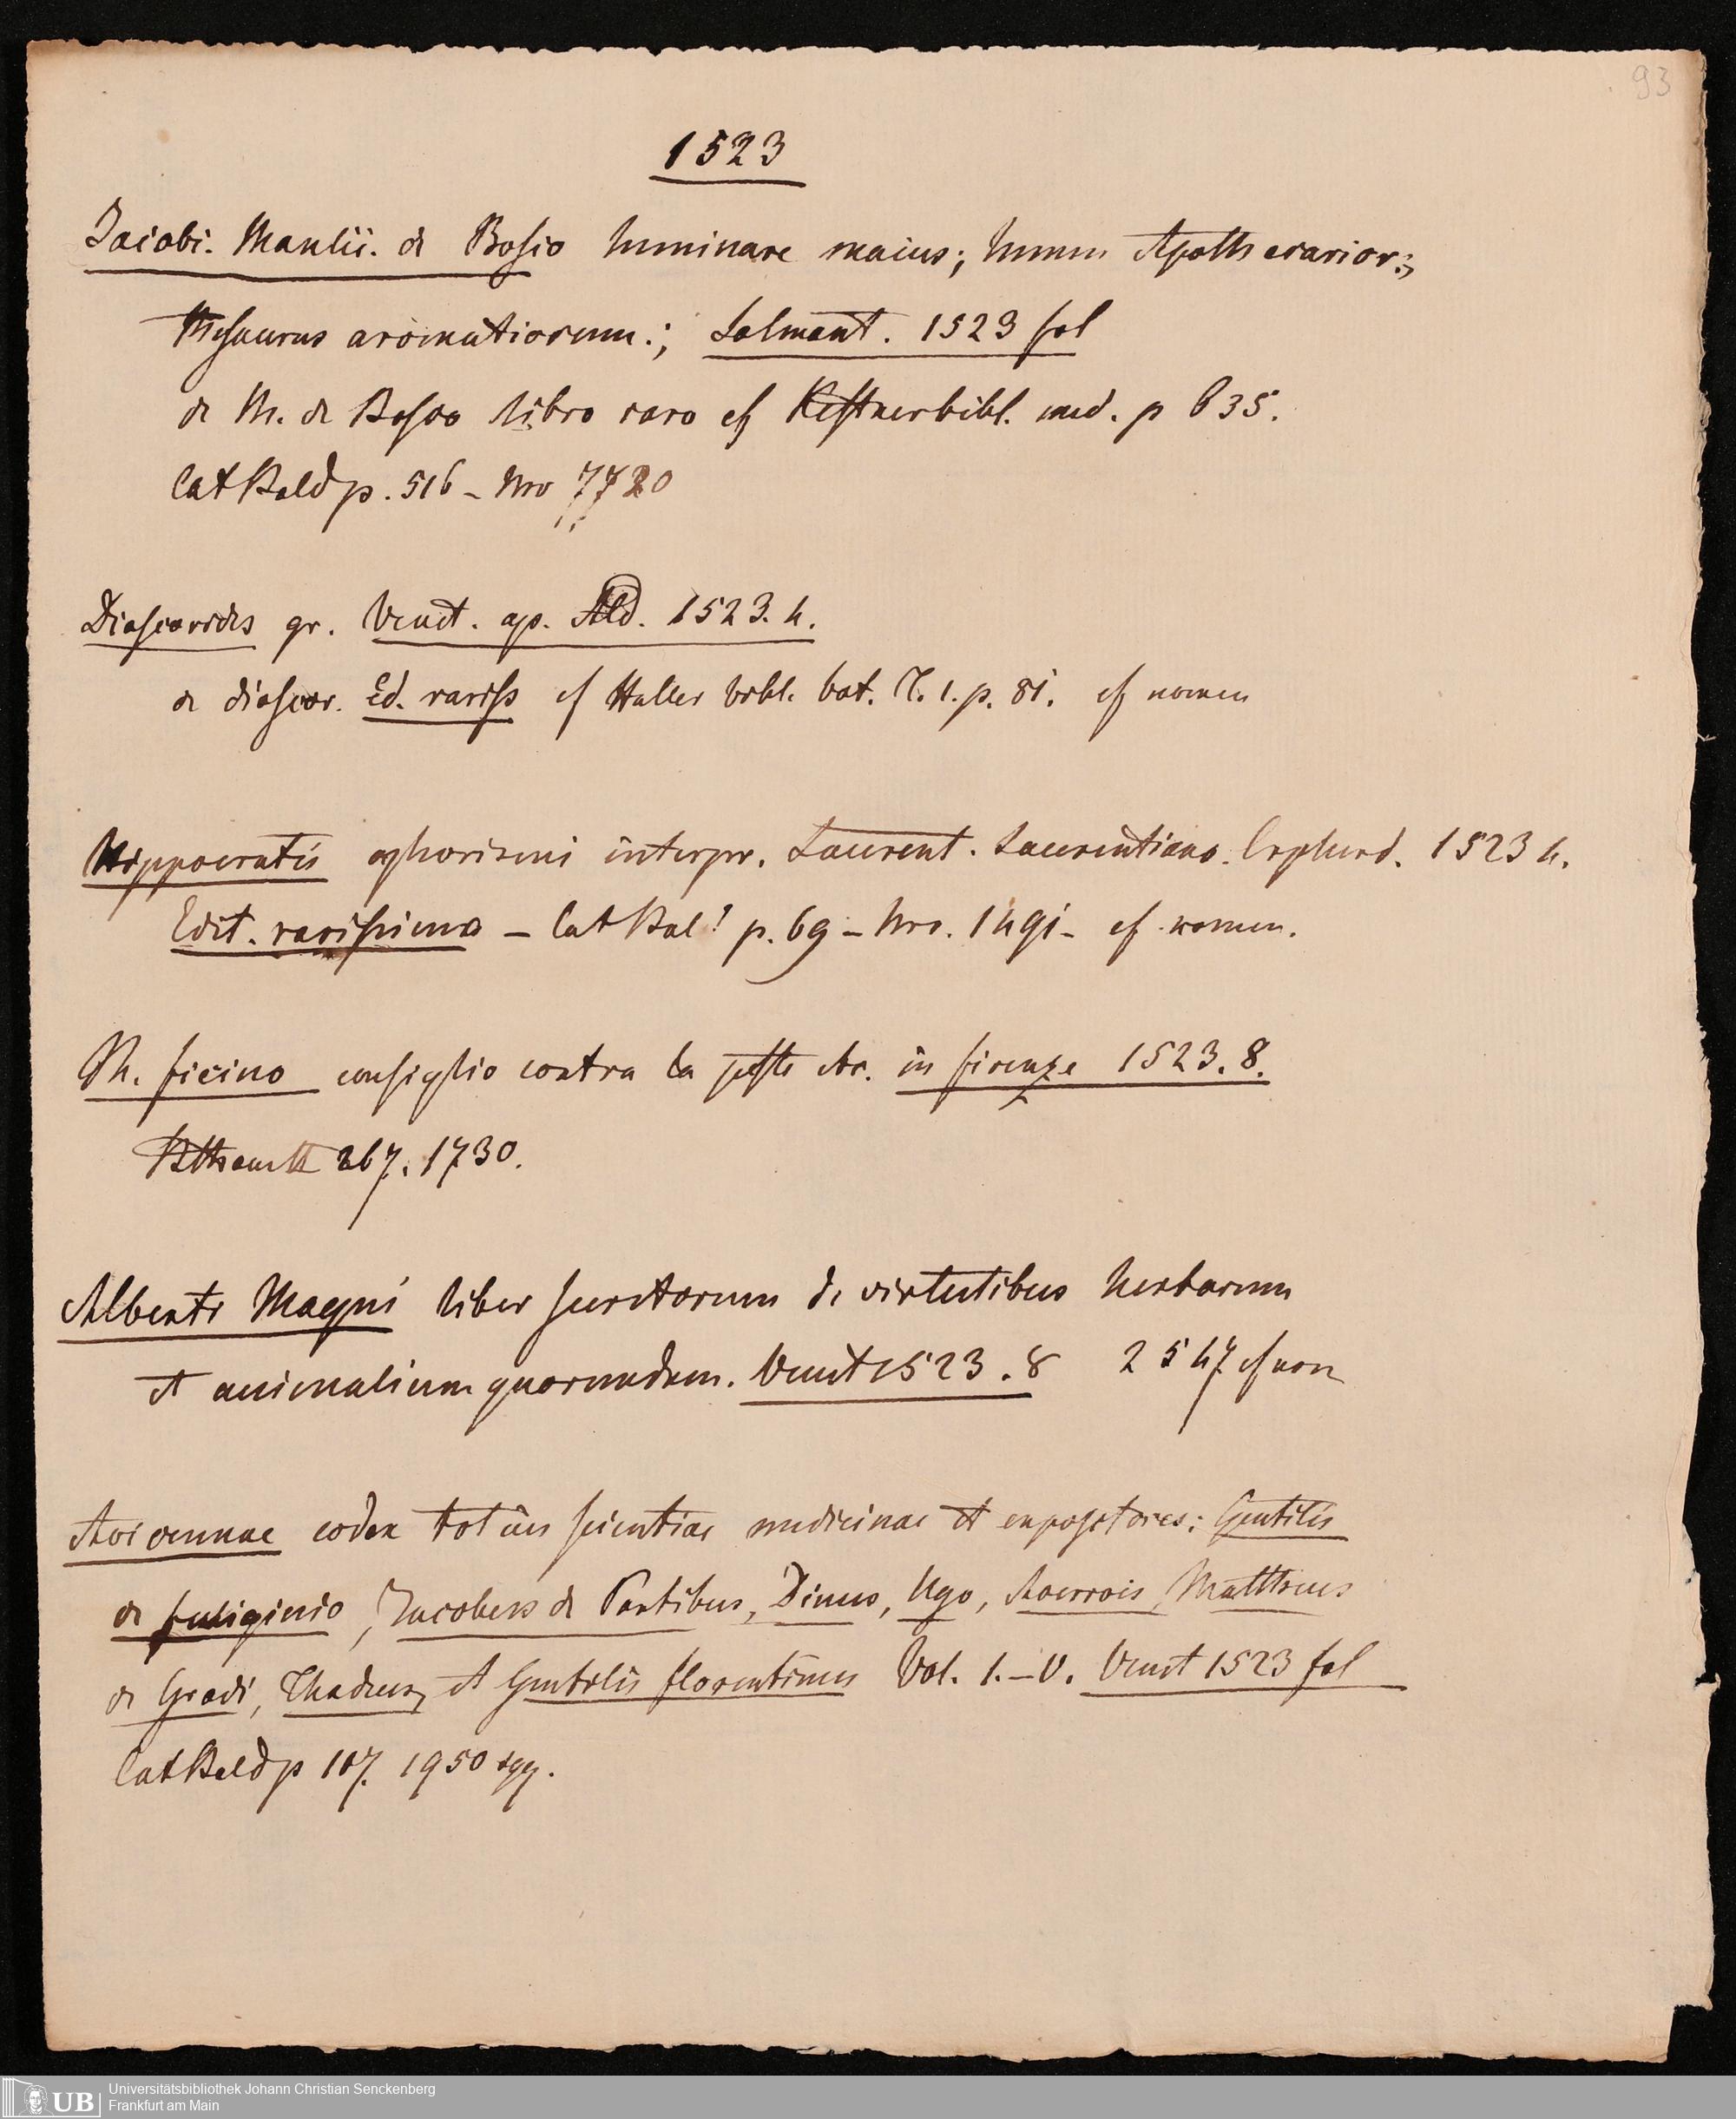 93
1523
Jacobi. Manlii. de Bosio luminare maius; lumen Apothecarior:;
thesaurus aromatiorum.; Salmant. 1523 fol
de M. de Bosco libro raro cf Kestner bibl. med. p 635.
Cat Bald p. 516 - Nro 7720
Dioscorides gr. Venet. ap. Ald. 1523. 4.
de dioscor. Ed. rariss cf Haller bibl. bot. T. 1. p. 81. cf nomen
Hippocratis aphorismi interpr. Laurent. Laurentiano. Erphurd. 1523 4.
Edit. rarissima - Cat Bal! p. 69 - Nro. 1491 - cf nomen.
M. ficino consiglio contra la peste etc. in firenze 1523. 8.
267. 1730.
Alberti Magni liber secretorum de virtutibus herbarum
et animalium quorundam. Venet 1523. 8 2547 cf nom
Avicennae codex totius scientiae medicinae et expositores: Gentilis
de fuliginio, Jacobus de Partibus, Dinus, Ugo, Averrois, Matthaeus
de Gradi, Thadeus, et Gentilis florentinus Vol. 1.-V. Venet 1523 fol
Cat Bald p 107. 1950 sqq.
UB
Universitätsbibliothek Johann Christian Senckenberg
Frankfurt am Main